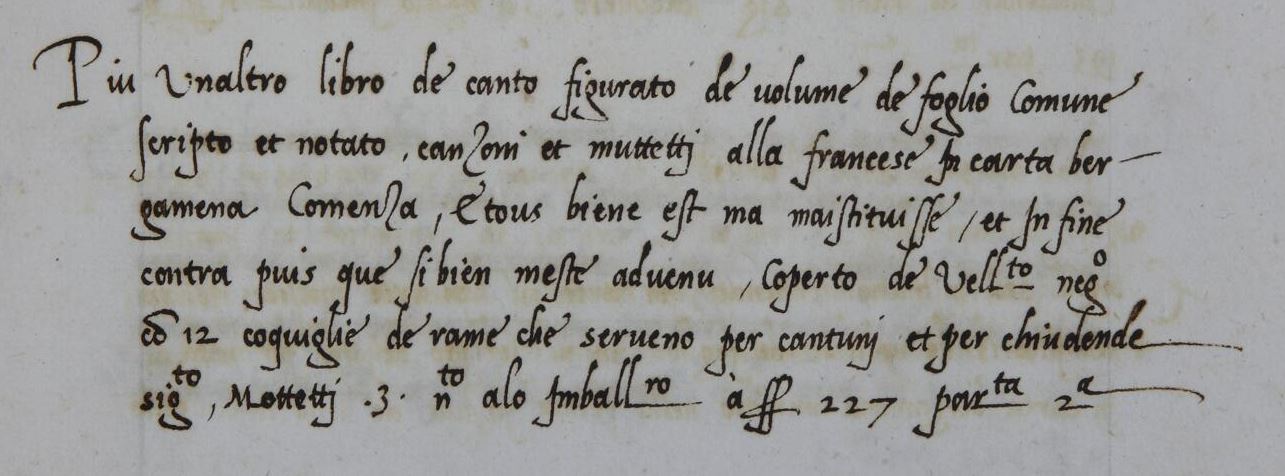 Piu Unaltro libro de canto figurato de volume de foglio Comune
scripto et notato, canzoni et muttettj alla francese In carta ber-
gamena Comenza, Etous biene est ma maistituisse, et In fine
contra puis que si bien meste advenu, Coperto de Vell.to neg.o
cō 12 coquiglie de rame che serveno per cantunj et per chiudende
sig.to, Mottettj .3. n.to alo Imball.ro à ff 227 par.ta 2.a